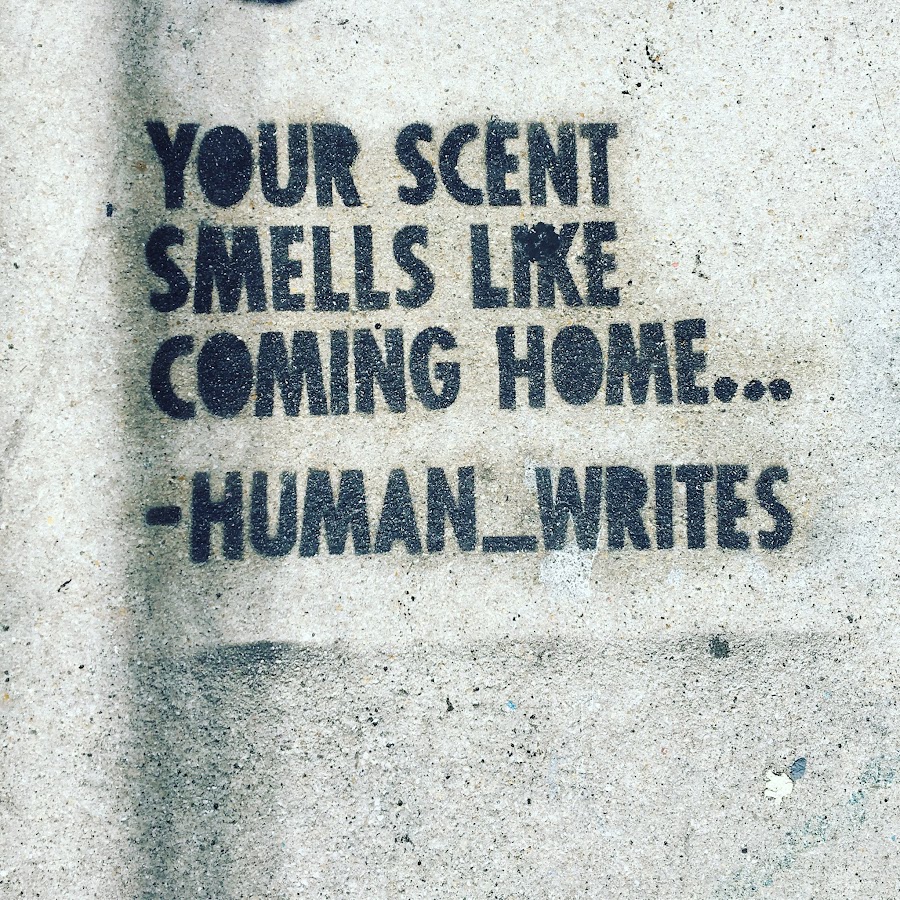 YOUR SCENT
SMELLS LIKE
COMING HOME...
-HUMAN_WRITES